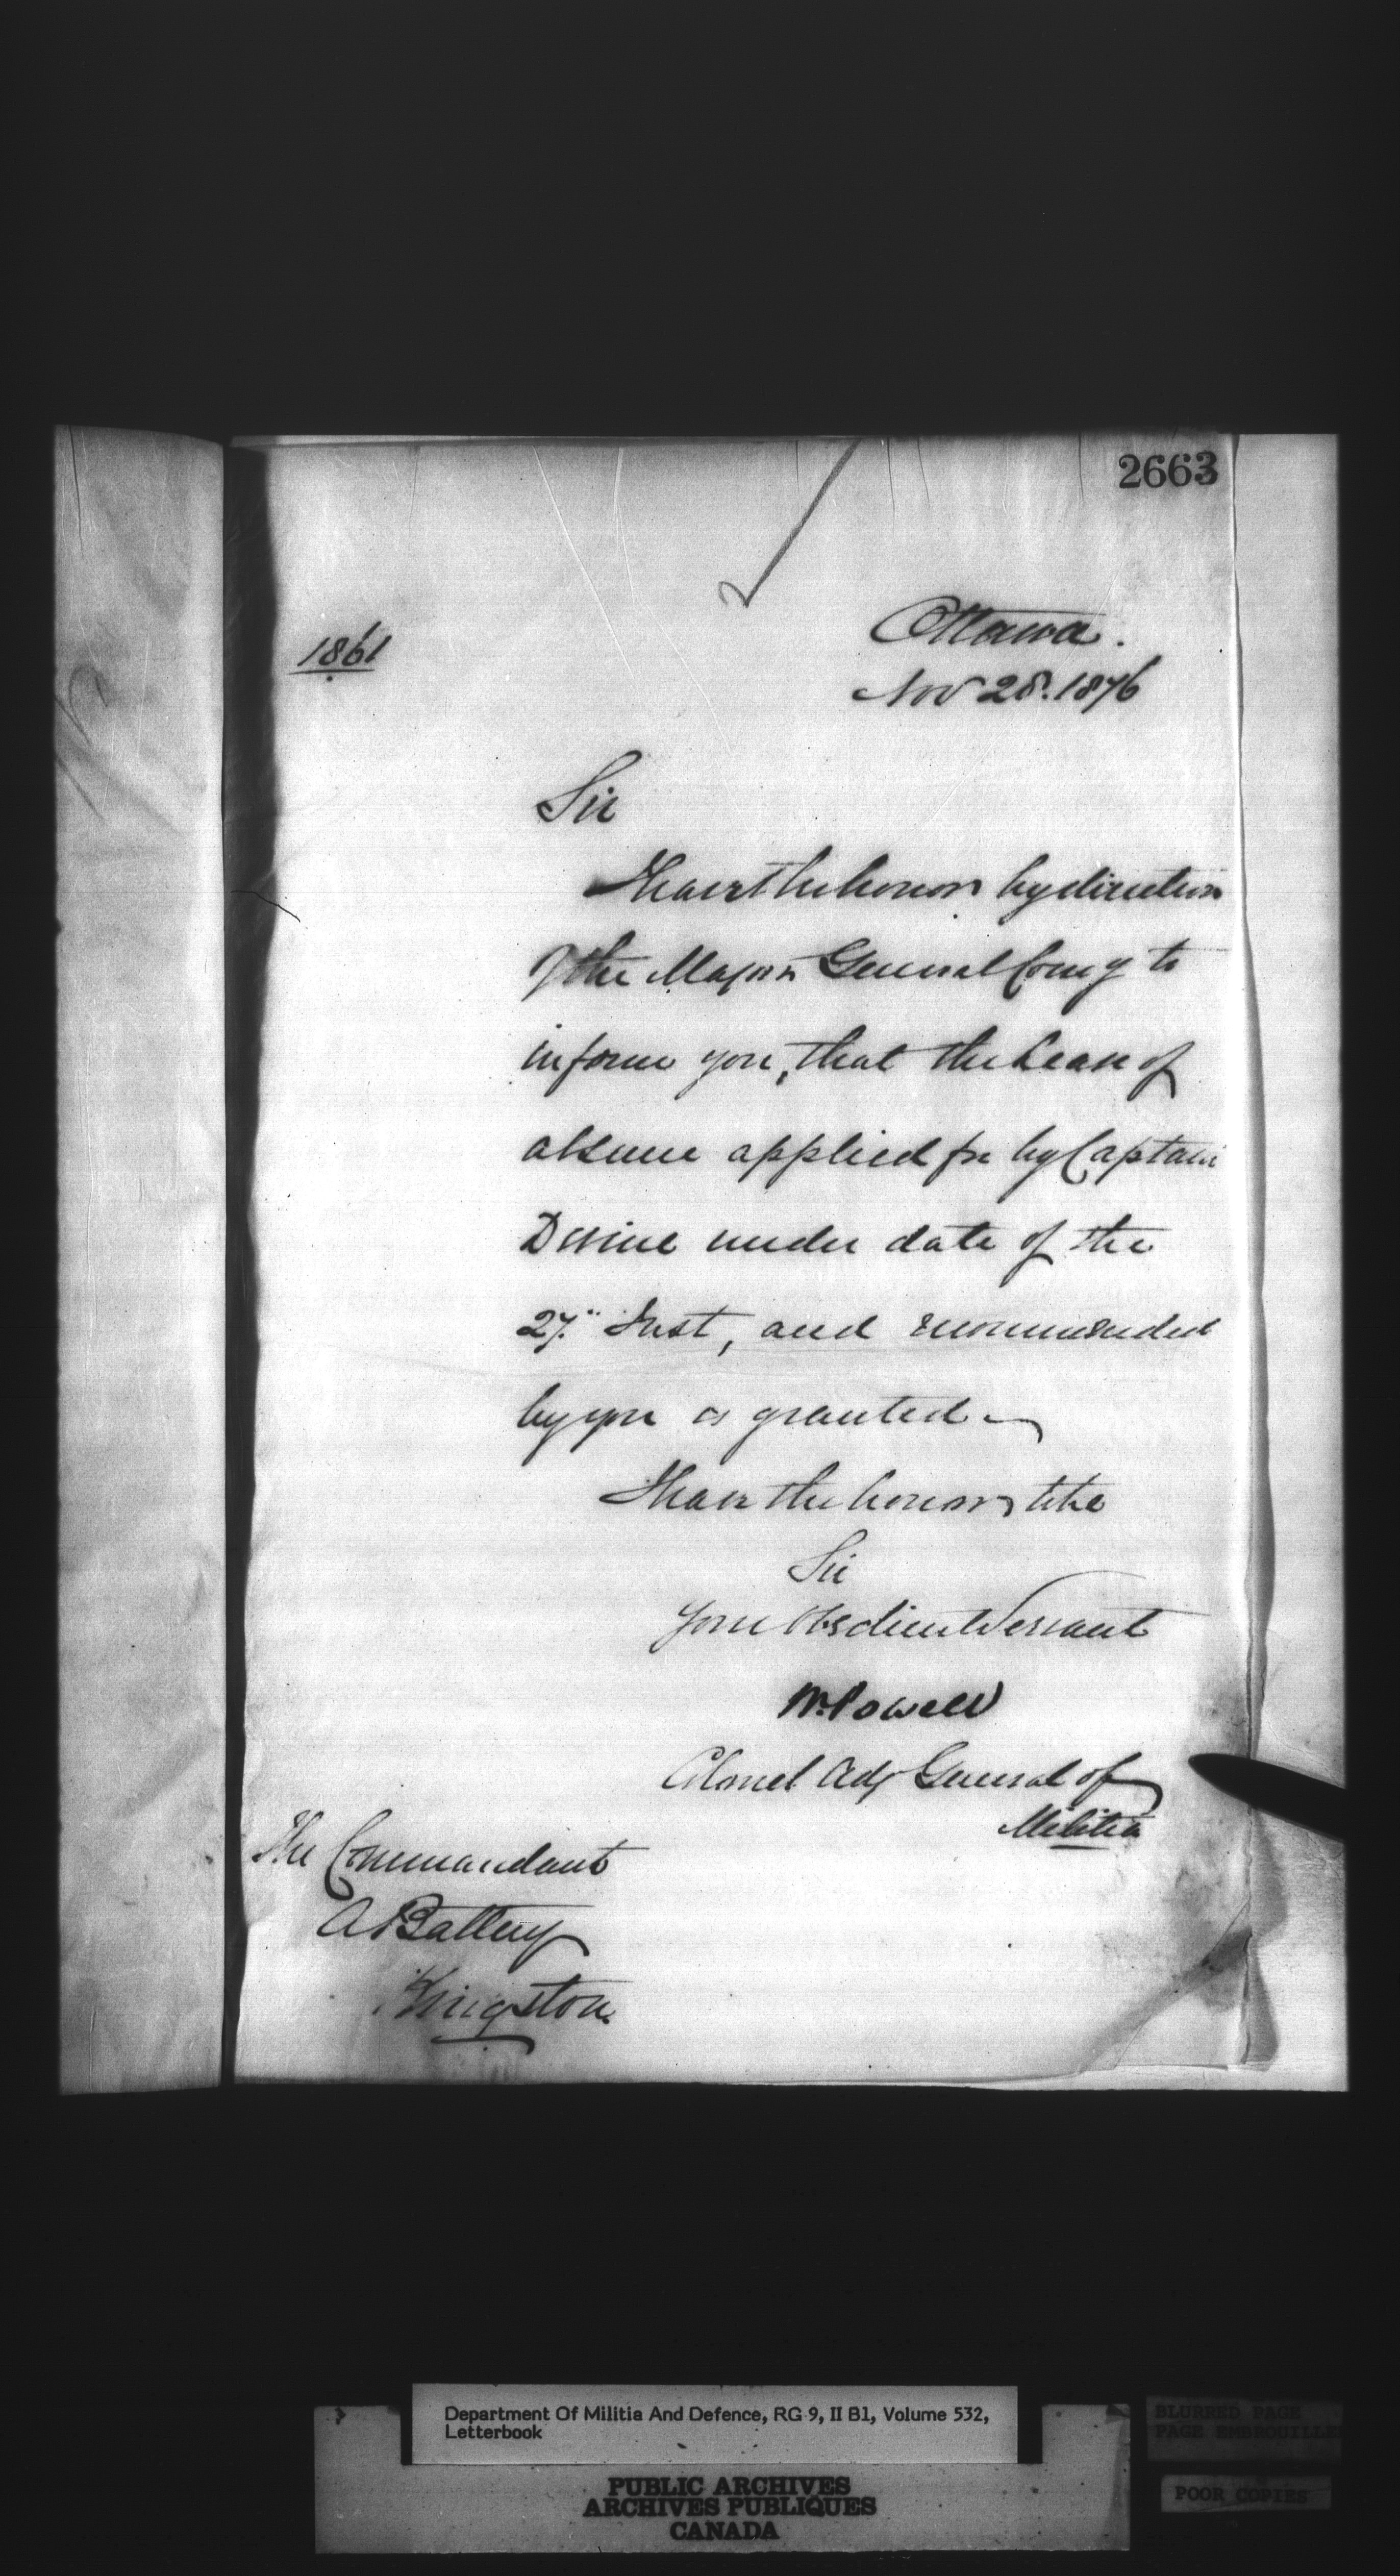 2663
1861
Ottawa.
Nov 28. 1876
Sir
I have the honor by direction
of the Major General Comg to
inform you, that the Leave of
absence applied for by Captain
Devine under date of the
27" Inst, and recommended
by you is granted
I have the honor to be
Sir
Your Obedient Servant
W. Powell
Colonel Adj General of
Militia
The Commandant
A Battery
Kingston
Department Of Militia And Defence, RG 9, II B1, Volume 532,
Letterbook
PUBLIC ARCHIVES
ARCHIVES PUBLIQUES
CANADA
BLURRED PAGE
PAGE EMBROUILLE
POOR COPIES